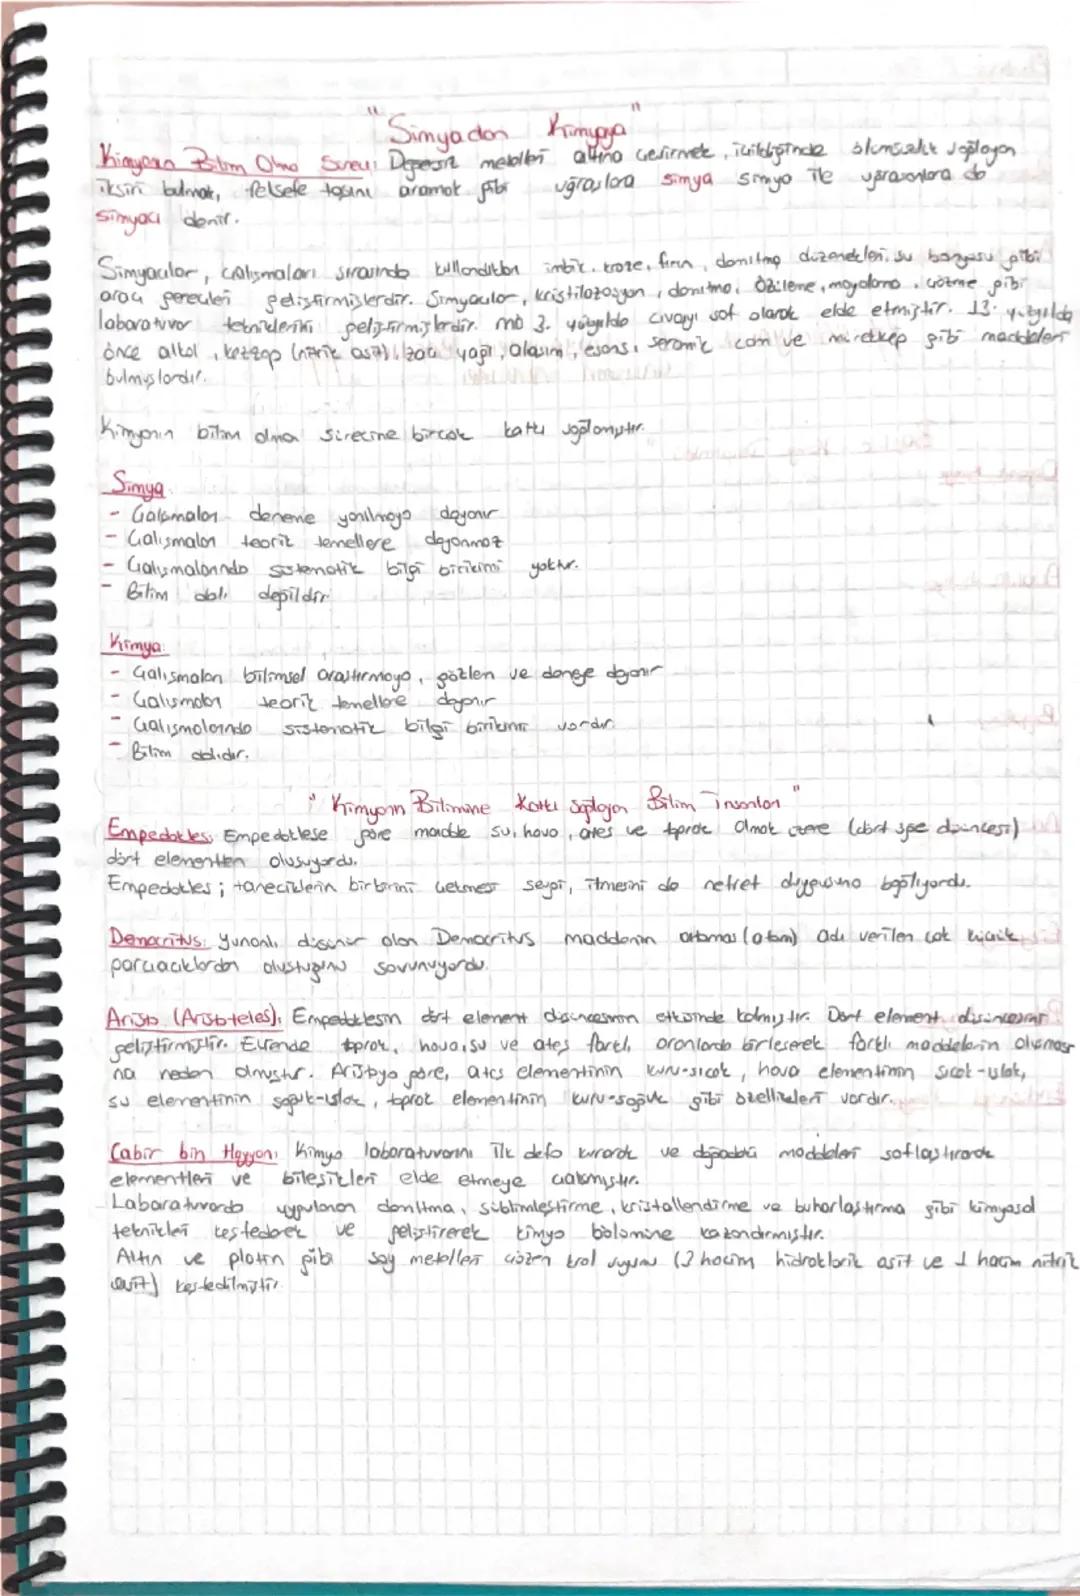 "Simyadan Kimyaya"
Kimyanın Bilim Olma Süreci: Değersiz metalleri altına çevirmek, içildiğinde ölümsüzlük sağlayan
iksiri bulmak, felsefe taşını aramak gibi uğraşlara simya simya ile uğraşanlara da
simyacı denir.
Simyacılar, çalışmaları sırasında kullandıkları imbik, kroze, fırın, damıtma düzenekleri, su banyosu gibi
araç gereçleri geliştirmişlerdir. Simyacılar, kristilazasyon, damıtma, özütleme, mayalama, çözme gibi
laboratuvar tekniklerini geliştirmişlerdir. mö 3. yüzyılda civayı saf olarak elde etmiştir. 13. yüzyılda
önce alkol, kezzap (nitrik asit), zaç yağı, alaşım, esans, seramik cam ve mürekkep gibi maddeleri
bulmuşlardır.
Kimyanın bilim olma sürecine birçok katkı sağlamıştır.
Simya
- Çalışmaları deneme yanılmaya dayanır
- Çalışmaları teorik temellere dayanmaz
- Çalışmalarında sistematik bilgi birikimi yoktur.
- Bilim dalı değildir
Kimya:
- Çalışmaları bilimsel araştırmaya, gözlem ve deneye dayanır
- Çalışmaları teorik temellere dayanır
- Çalışmalarında sistematik bilgi birikimi vardır.
- Bilim dalıdır.
"Kimyanın Bilimine Katkı Sağlayan Bilim İnsanları"
Empedokles: Empedoklese göre madde su, hava, ateş ve toprak olmak üzere (dört öge düşüncesi)
dört elementten oluşuyordu.
Empedokles; taneciklerin birbirini çekmesi sevgi, itmesini de nefret duygusuna bağlıyordu.
Democritus: Yunanlı düşünür olan Democritus maddenin atomas (atom) adı verilen çok küçük
parçacıklardan oluştuğunu savunuyordu.
Aristo (Aristoteles): Empedoklesin dört element düşüncesinin etkisinde kalmıştır. Dört element düşüncesini
geliştirmiştir. Evrende toprak, hava, su ve ateş farklı oranlarda birleşerek farklı maddelerin oluşması
na neden olmuştur. Aristoya göre, ateş elementinin kuru-sıcak, hava elementinin sıcak-ıslak,
su elementinin soğuk-ıslak, toprak elementinin kuru-soğuk gibi özellikleri vardır.
Cabir bin Hayyan: Kimya laboratuvarını ilk defa kurarak ve doğadaki maddeleri saflaştırarak
elementleri ve bileşikleri elde etmeye çalışmıştır.
Laboratuvarda uygulanan damıtma, süblimleştirme, kristallendirme ve buharlaştırma gibi kimyasal
teknikleri keşfederek ve geliştirerek kimya bilimine kazandırmıştır.
Altın ve platin gibi soy metalleri çözen kral suyunu (3 hacim hidroklorik asit ve 1 hacim nitrik
asit) keşfedilmiştir.